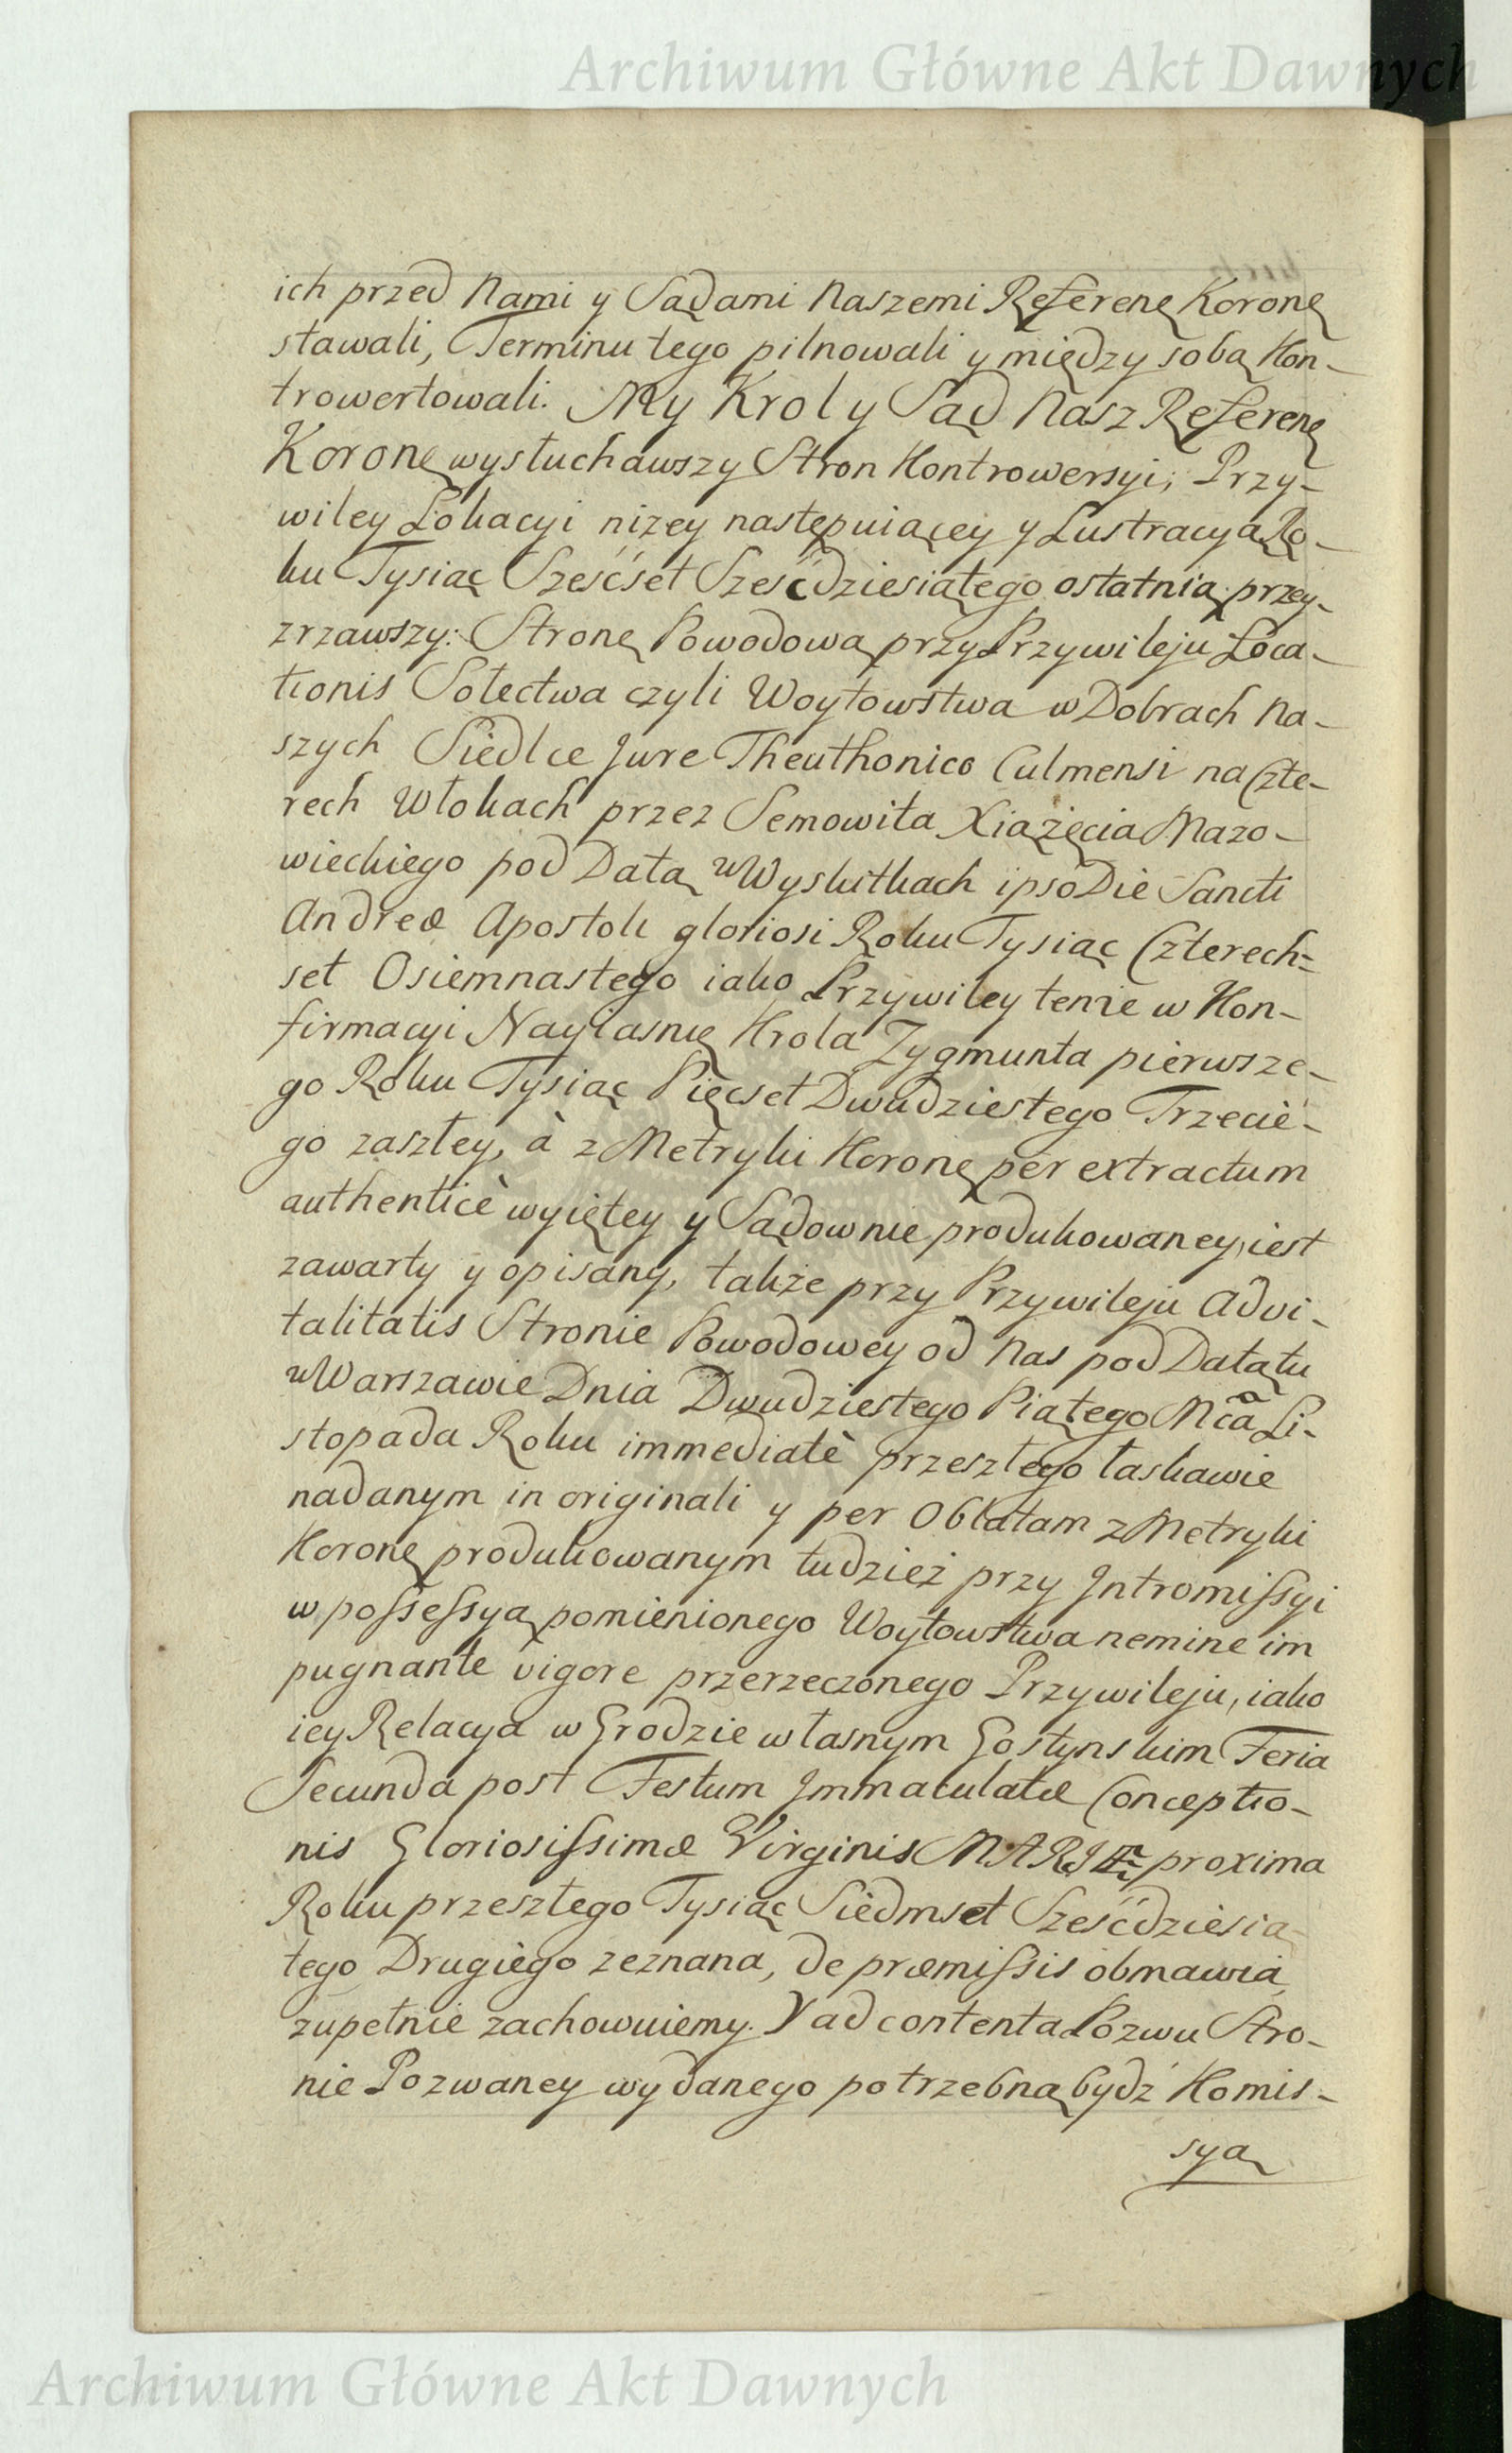 Archiwum Główne Akt Dawnych
ich przed Nami y Sądami Naszemi Referenę Koronę
stawali, Terminu tego pilnowali y między sobą Kon-
trowertowali. My Krol y Sąd Nasz Referenę
Koronę wysłuchawszy Stron Kontrowersyi, Przy-
wiley Lokacyi niżey następuiącey y Lustracyą Ro-
ku Tysiąc Sześćset Sześćdziesiątego ostatnią przey-
zrzawszy: Stronę Powodową przy Przywileju Loca-
tionis Sołectwa czyli Woytowstwa w Dobrach Na-
szych Siedlce Jure Theuthonico Culmensi na Czte-
rech Włokach przez Semowita Xiążęcia Mazo-
wieckiego pod Datą w Wyskitkach ipso Die Sancti
Andreæ Apostoli gloriosi Roku Tysiąc Czterech-
set Osiemnastego iako Przywiley tenże w Kon-
firmacyi Nayiasnię Krola Zygmunta pierwsze-
go Roku Tysiąc Pięcset Dwudziestego Trzecie-
go zaszłey, à z Metryki Koronę per extractum
authenticè wyiętey y Sądownie produkowaney, iest
zawarty y opisany, także przy Przywileju advi-
talitatis Stronie Powodowey od Nas pod Datą tu
w Warszawie Dnia Dwudziestego Piątego Mcã Li-
stopada Roku immediatè przeszłego łaskawie
nadanym in originali y per Oblatam z Metryki
Koronę produkowanym tudzież przy Jntromissyi
w possessyą pomienionego Woytowstwa nemine im
pugnante vigore przerzeczonego Przywileju, iako
iey Relacya w Grodzie własnym Gostynskim Feria
Secunda post Festum Jmmaculatæ Conceptio-
nis Gloriosissimæ Virginis MARIÆ proxima
Roku przeszłego Tysiąc Siedmset Sześćdziesią-
tego Drugiego zeznana, de præmissis obmawia,
zupełnie zachowuiemy. Y ad contenta Pozwu Stro-
nie Pozwaney wydanego potrzebną bydź Komis-
syą
Archiwum Główne Akt Dawnych